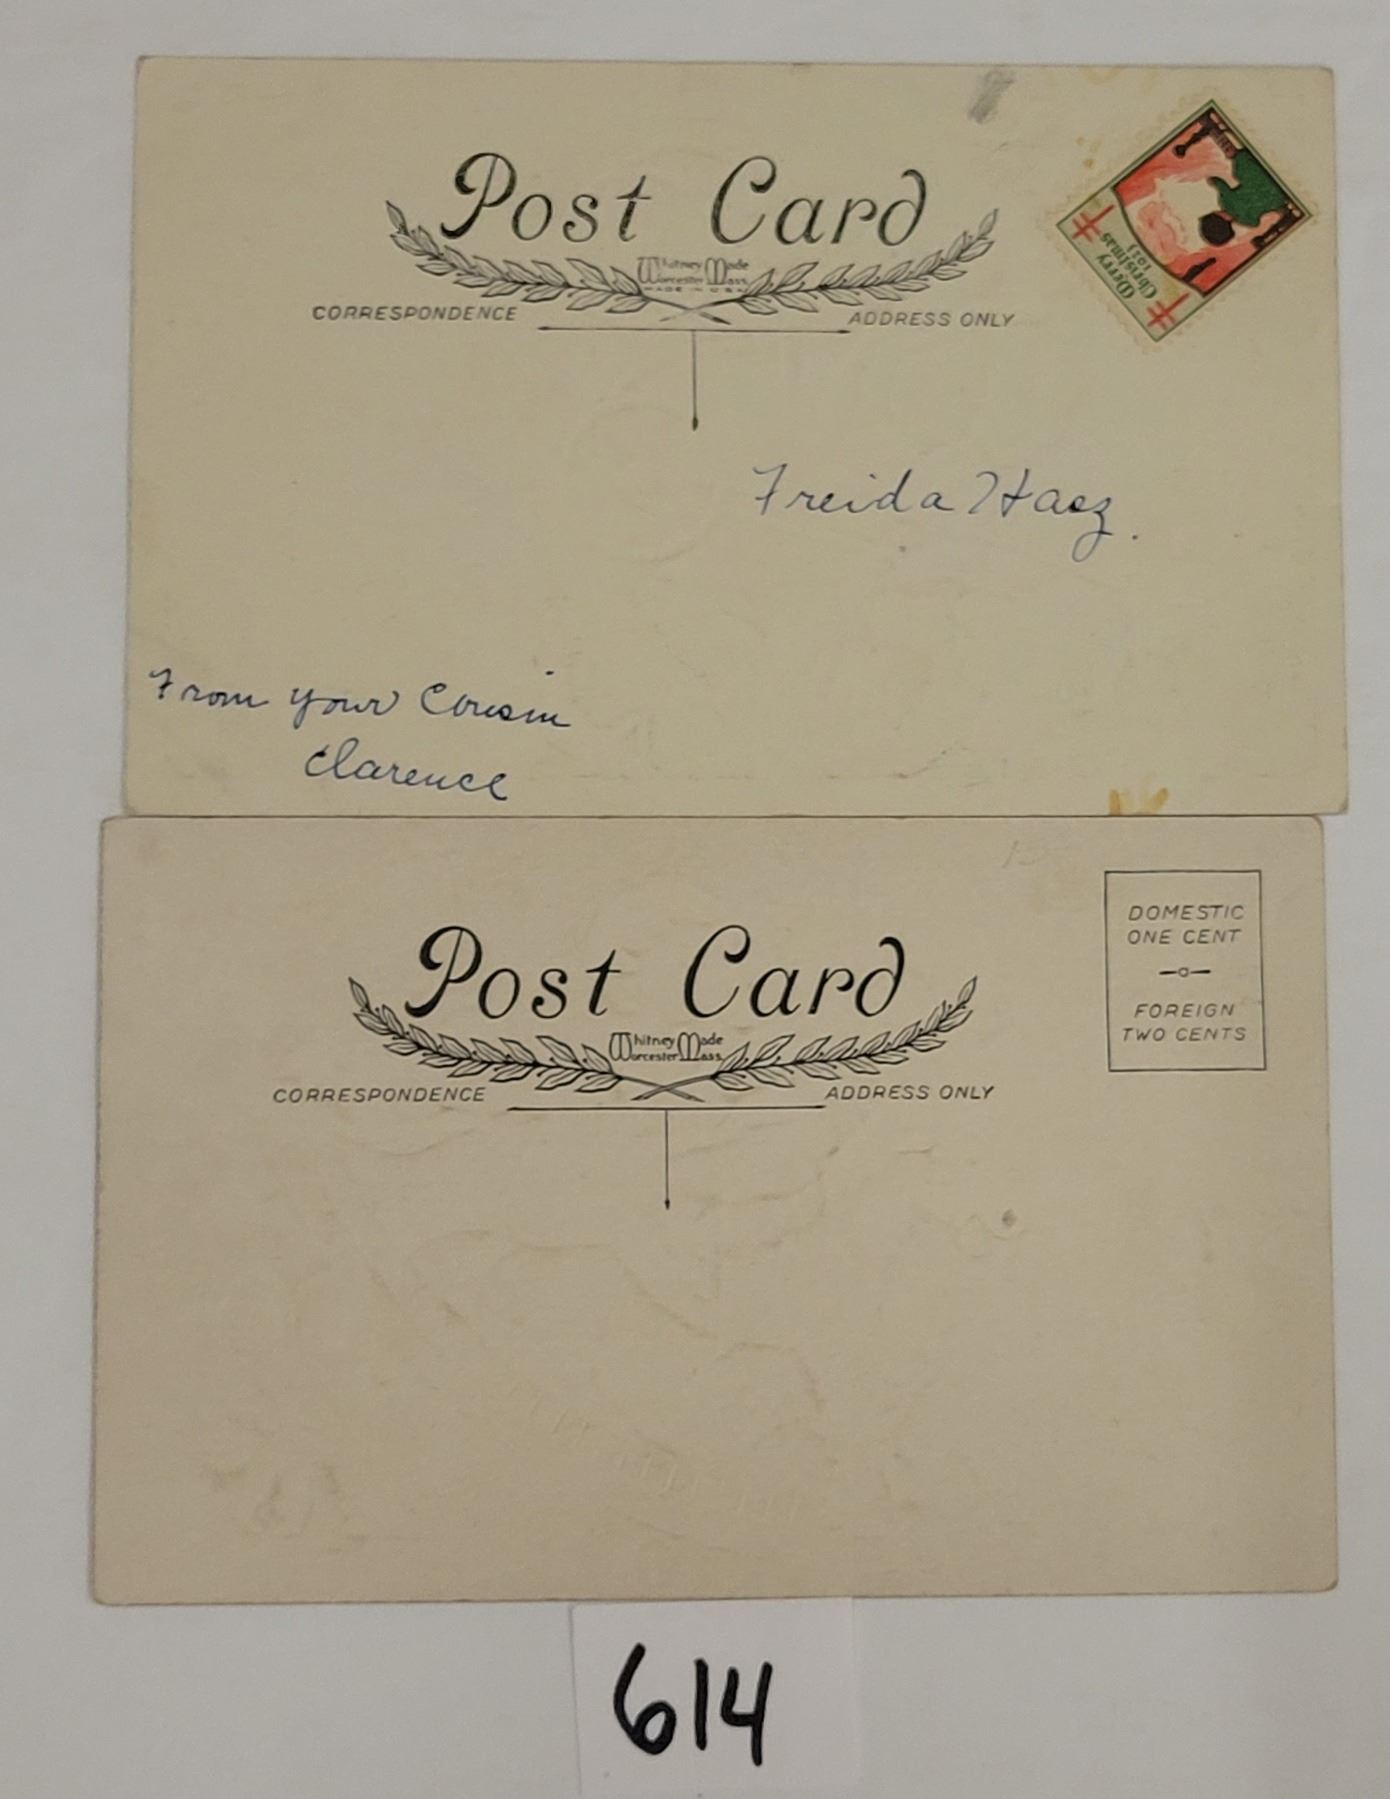 Post Card
Whitney Made
Worcester Mass.
MADE IN U.S.A.
CORRESPONDENCE
ADDRESS ONLY
Merry
Christmas
Freida Haez.
From your Cousin
Clarence
Post Card
Whitney Made
Worcester Mass.
CORRESPONDENCE
ADDRESS ONLY
DOMESTIC
ONE CENT
FOREIGN
TWO CENTS
614